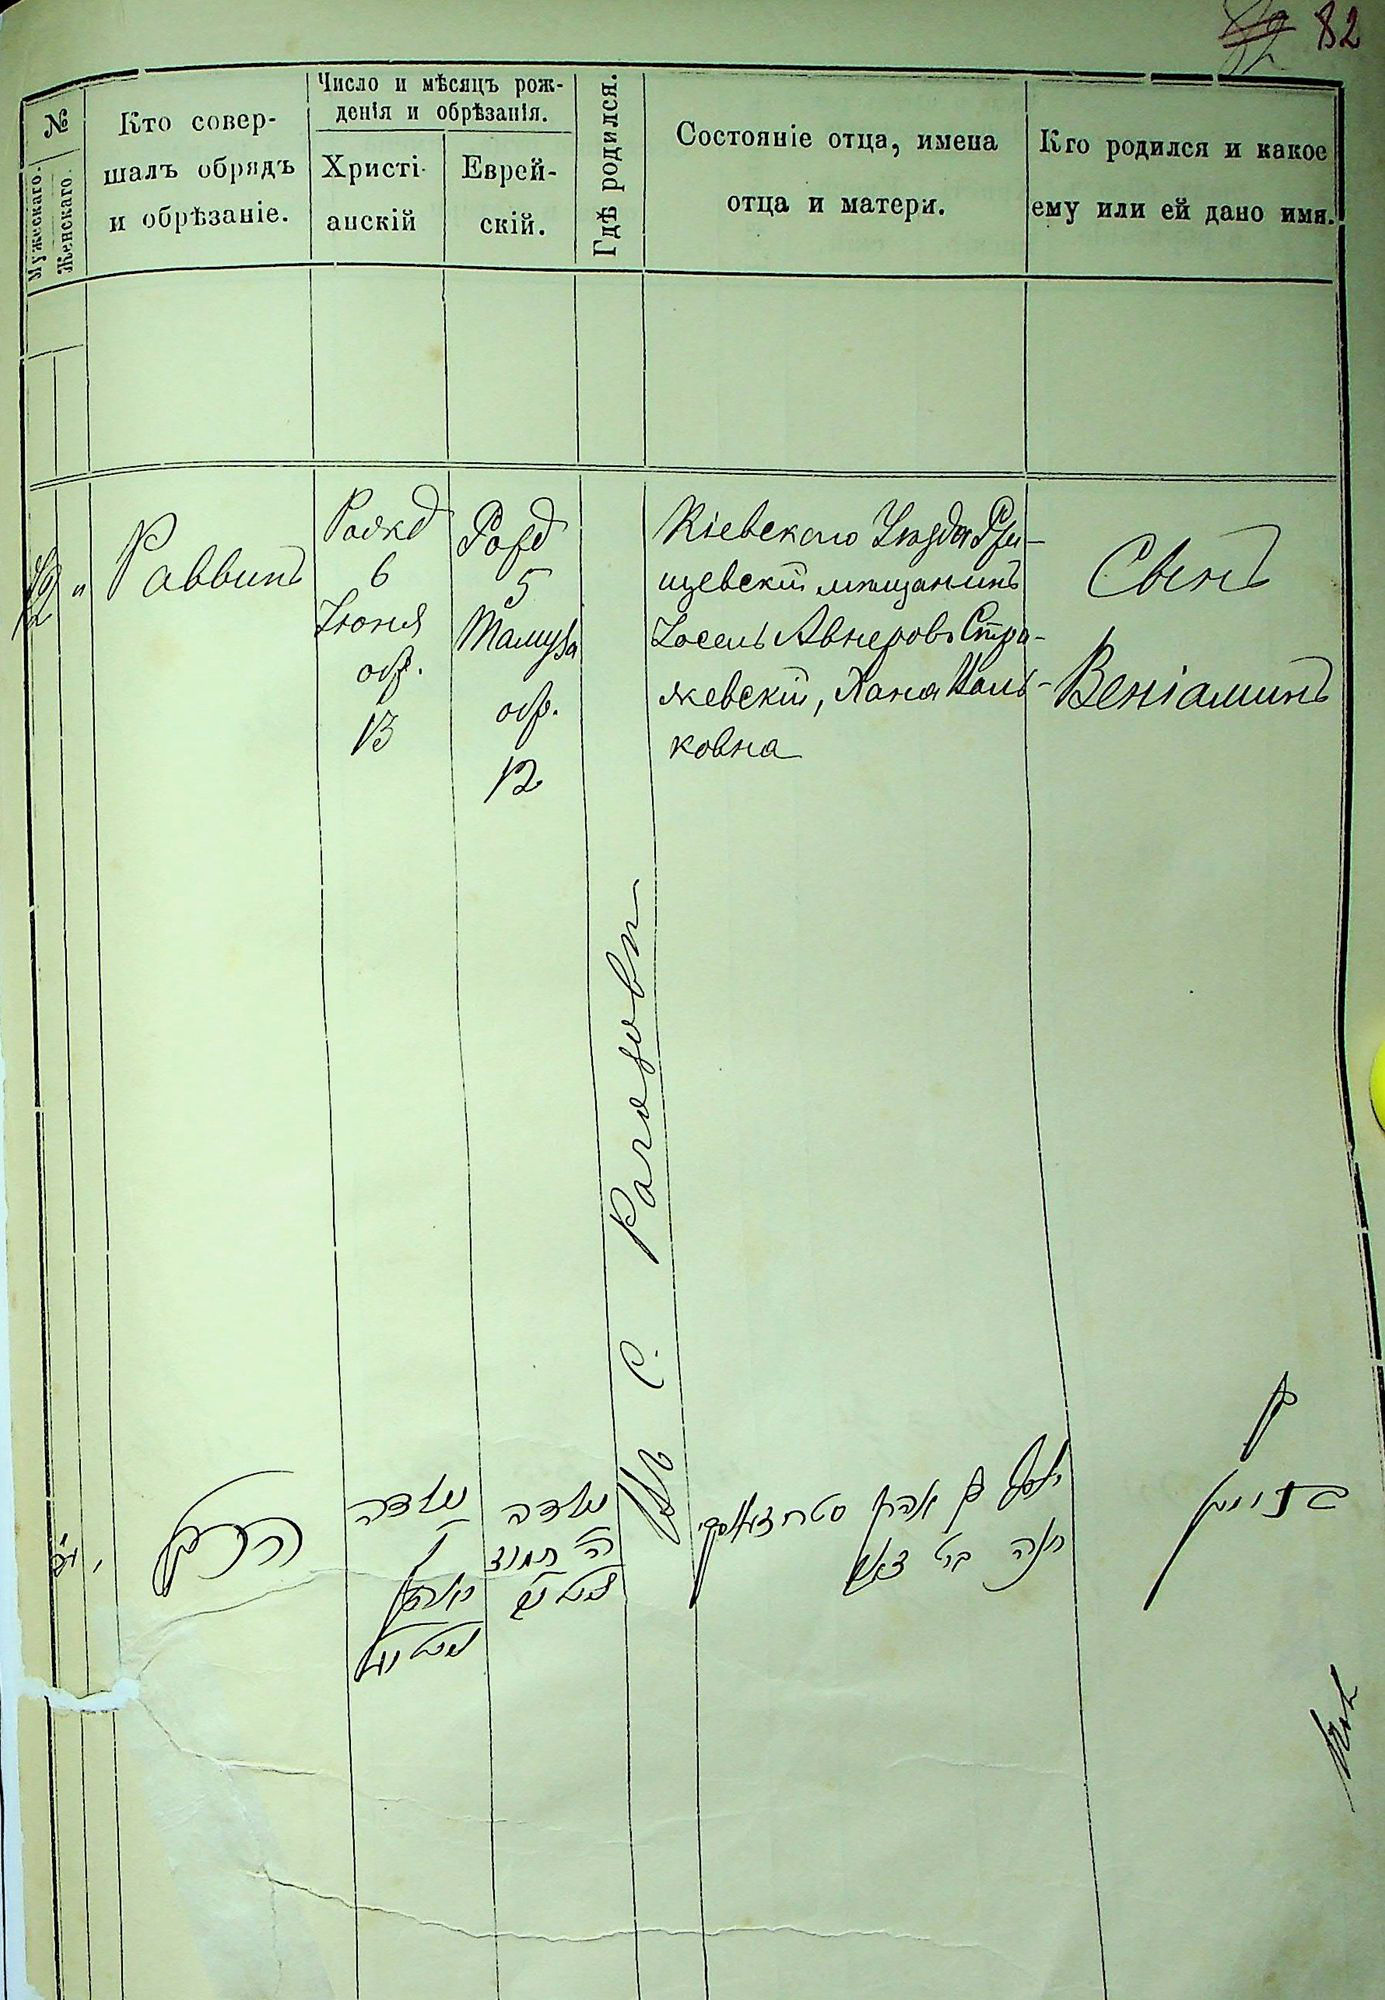 82
№
Мужескаго.
Женскаго.
Кто совер-
шалъ обрядъ
и обрѣзаніе.
Число и мѣсяцъ рож-
денія и обрѣзанія.
Христі-
анскій
Еврей-
скій.
Гдѣ родился.
Состояніе отца, имена
отца и матери.
Кто родился и какое
ему или ей дано имя.
"
Раввинъ
Рожд
6
Іюня
обр.
13
Рожд
5
Тамуза
обр.
12
С. Рагозовѣ
Кіевскаго Уѣзда Ржи-
щевскій мѣщанинъ
Іосель Авнеровъ Стра-
жевскій, Хана
ковна
Сынъ
Веніаминъ
הרב
נולדה
נולדה
ה' תמוז
יוסף בן
חנה בת
בן
בנימין